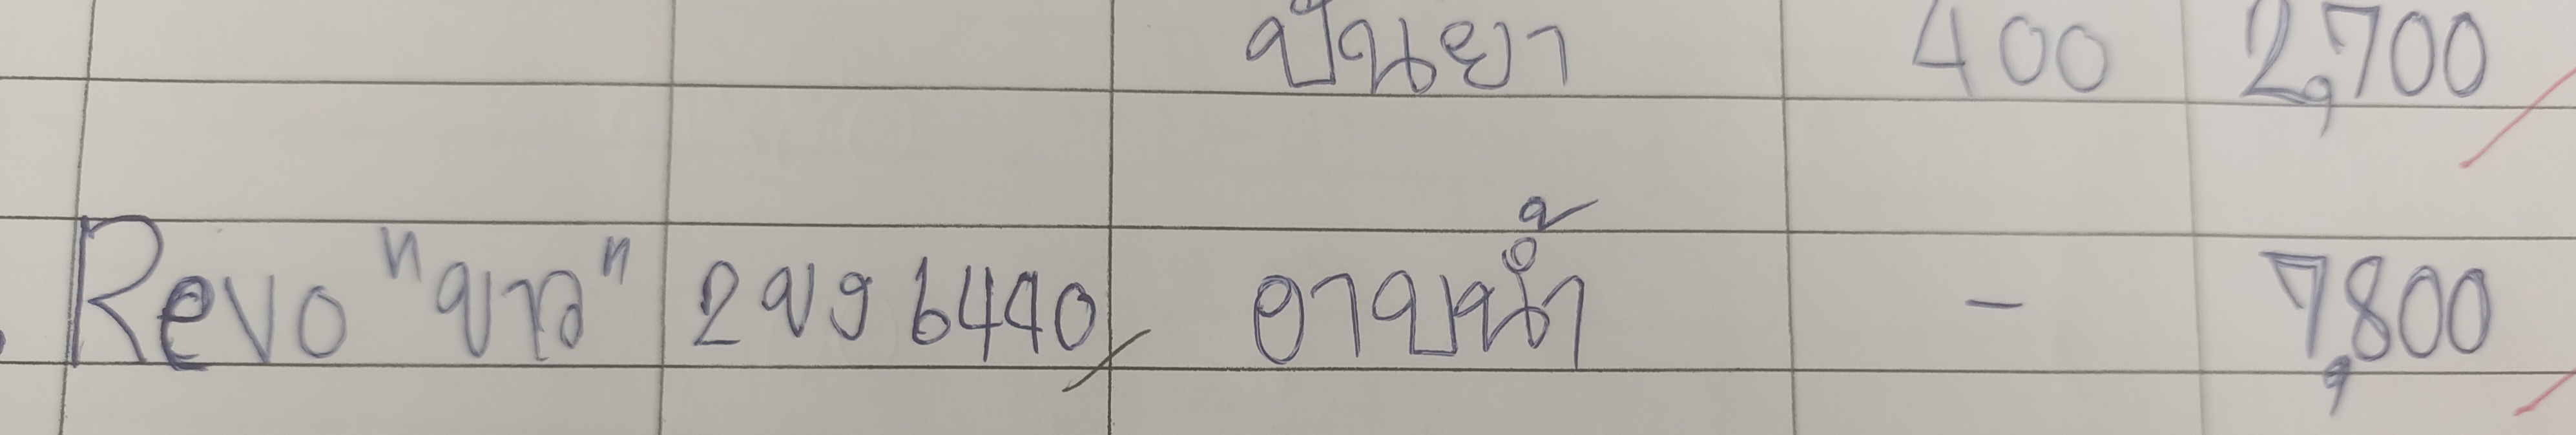 ปั่นยา 400 2,700
Revo "ขาว" 2ขง 6440 อาบน้ำ - 7,800